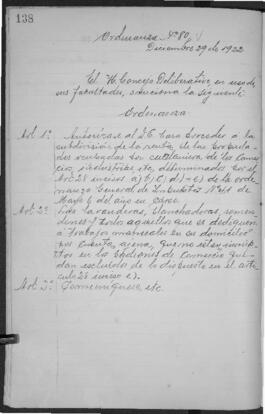 138
Ordenanza Nº 80
Diciembre 29 de 1922
El H. Concejo Deliberativo en uso de
sus facultades, sanciona la siguiente
Ordenanza:
Art. 1º: Autorízase al D.E. para proceder a la
subdivisión de la renta, de las
dos
cio, industrias etc, determinados por el
Art. 28 incisos a) b) c) d) - e) de la orde
nanza General de Impuestos Nº 41 de
Mayo 6 del año en curso
Art. 2º: Las lavanderas, planchadoras,
y todo aquellos que se dediquen
a trabajos materiales en su domicilio
por cuenta ajena, que no estén inscrip
tos en los de Comercio que
dan excluidos de lo dispuesto en el artí
culo 28 inciso e).
Art. 3º: Comuníquese, etc.